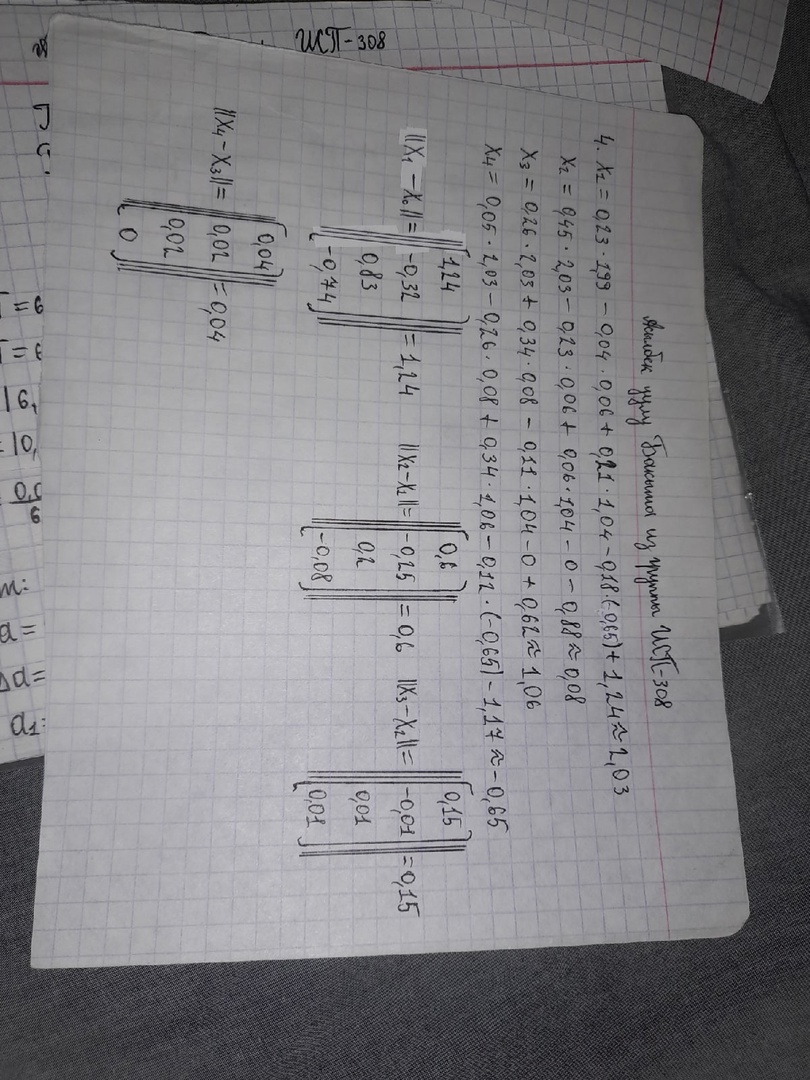 ИСП-308
уулу Бакыта из группы ИСП-308
4. X₁ = 0,23 · 1,99 - 0,04 · 0,06 + 0,21 · 1,04 - 0,18 · (-0,65) + 1,24 ≈ 2,03
X₂ = 0,45 · 2,03 - 0,23 · 0,06 + 0,06 · 1,04 - 0 - 0,88 ≈ 0,08
X₃ = 0,26 · 2,03 + 0,34 · 0,08 - 0,11 · 1,04 - 0 + 0,62 ≈ 1,06
X₄ = 0,05 · 2,03 - 0,26 · 0,08 + 0,34 · 1,06 - 0,12 · (-0,65) - 1,17 ≈ -0,65
||X₁ - X₀|| = ||[1,24
-0,32
0,83
-0,74]|| = 1,24
||X₂ - X₁|| = ||[0,6
-0,25
0,2
-0,08]|| = 0,6
||X₃ - X₂|| = ||[0,15
-0,01
0,01
0,01]|| = 0,15
||X₄ - X₃|| = ||[0,04
0,02
0,02
0]|| = 0,04